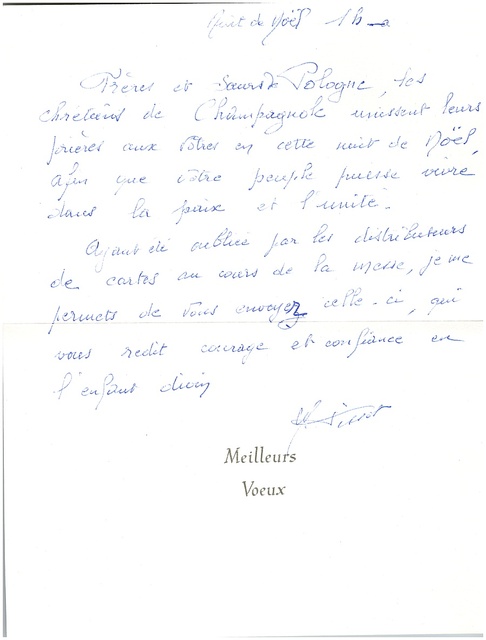 Nuit de Noël 1h
Frères et Soeurs de Pologne, les
chrétiens de Champagnole unissent leurs
prières aux vôtres en cette nuit de Noël,
afin que votre peuple puisse vivre
dans la paix et l'unité.
Ayant été oubliée par les distributeurs
de cartes au cours de la messe, je me
permets de vous envoyez celle-ci, qui
vous redit courage et confiance en
l'enfant divin
Meilleurs
Voeux